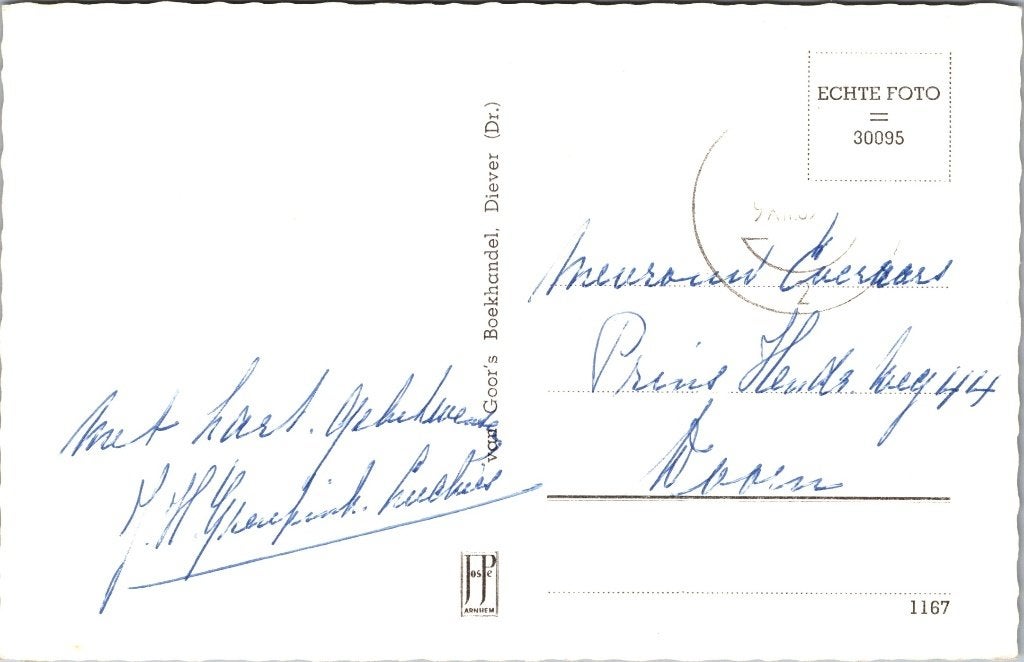 ECHTE FOTO
=
30095
2
van Goor's Boekhandel, Diever (Dr.)
Mevrouw Everaars
Prins Hendr. weg 44
Doorn
Met hart.
J.H.
JosPe
ARNHEM
1167